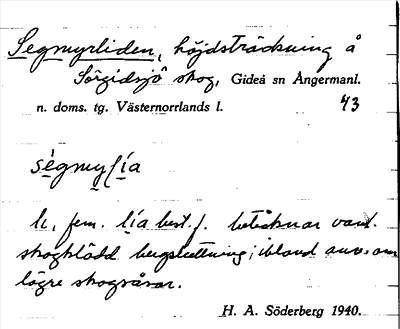 Segmyrliden, höjdsträckning å
Sörgidsjö skog, Gideå sn Ångermanl.
n. doms. tg. Västernorrlands l.
43
sègmyl̀ía
li, fem. lía best. f. betecknar vanl.
skogklädd bergsluttning; ibland anv. om
lägre skogsåsar.
H. A. Söderberg 1940.